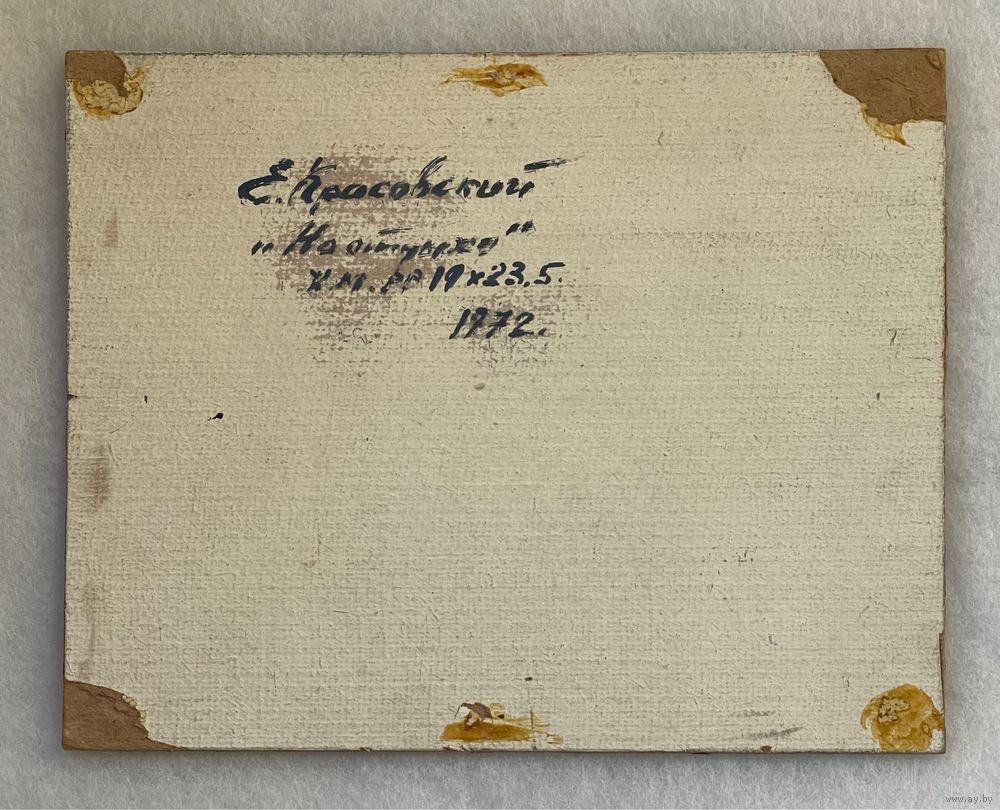 Е. Красовский
„На отдыхе"
х.м. рр 19х23,5.
1972.
www.ay.by